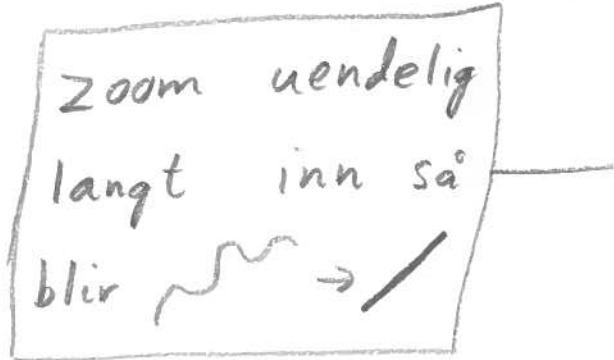 zoom uendelig
langt inn så
blir →